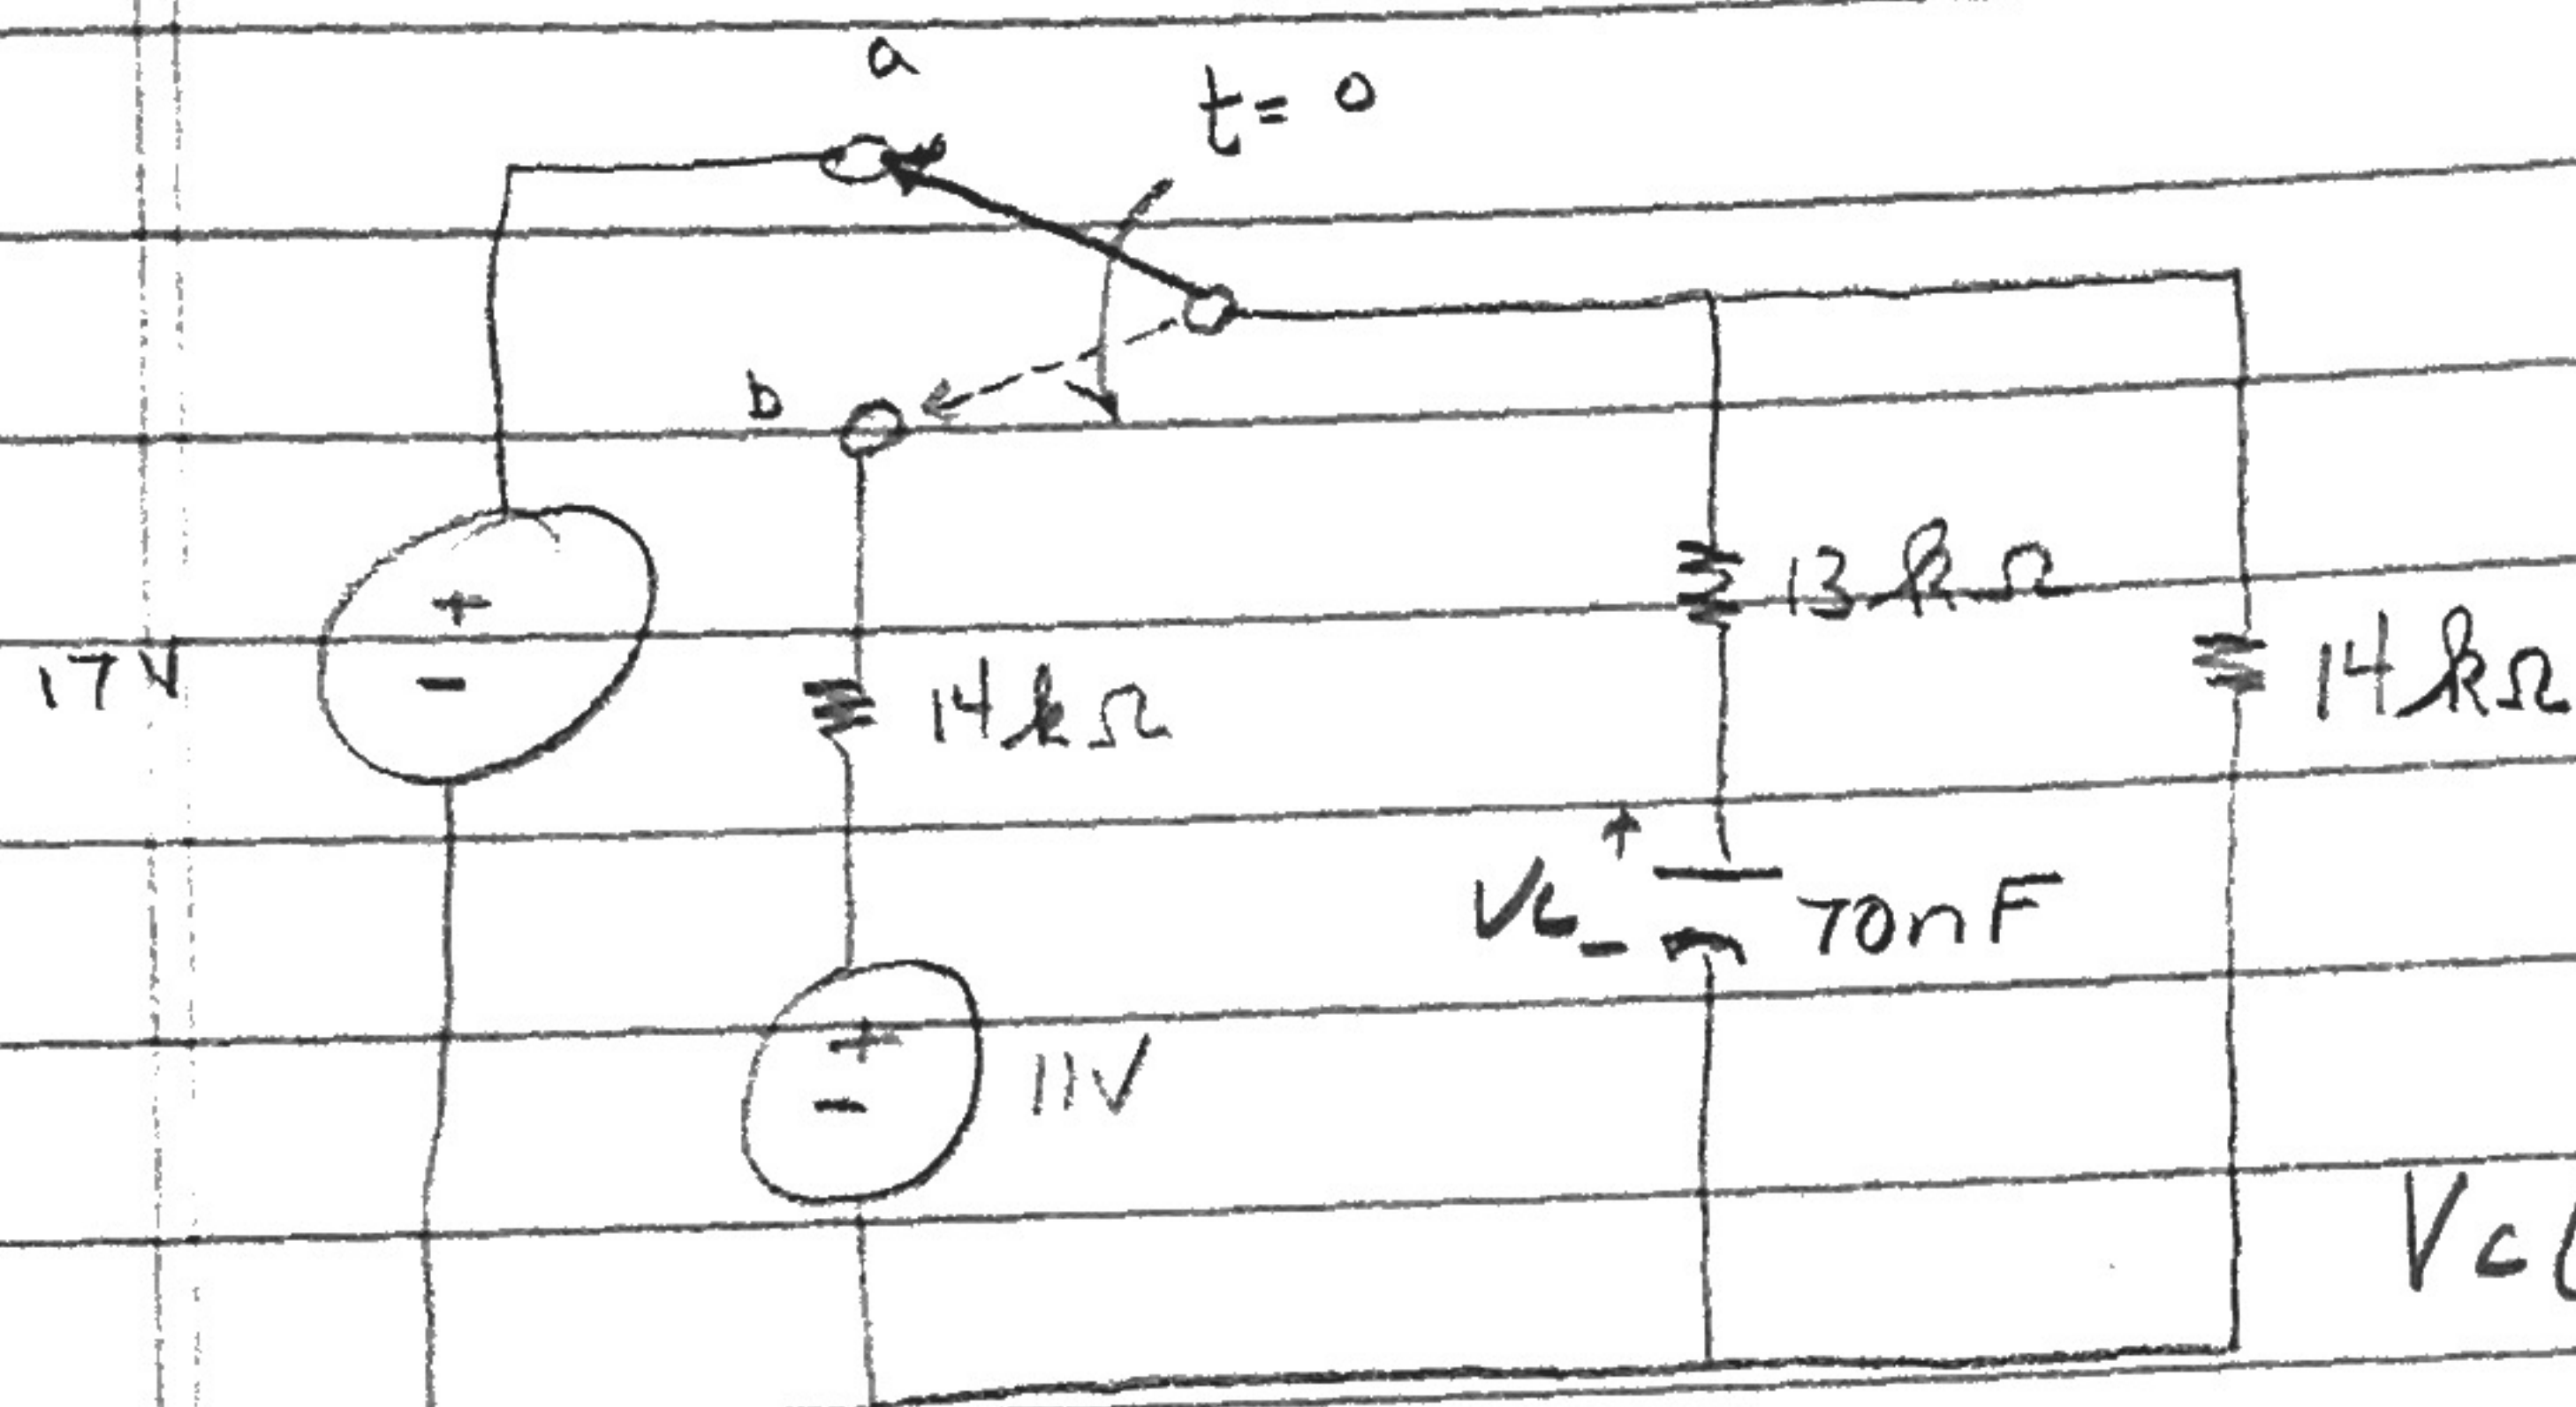 a
t = 0
b
17V
+
-
14kΩ
13kΩ
14kΩ
+
Vc
-
70nF
+
-
11V
Vc(